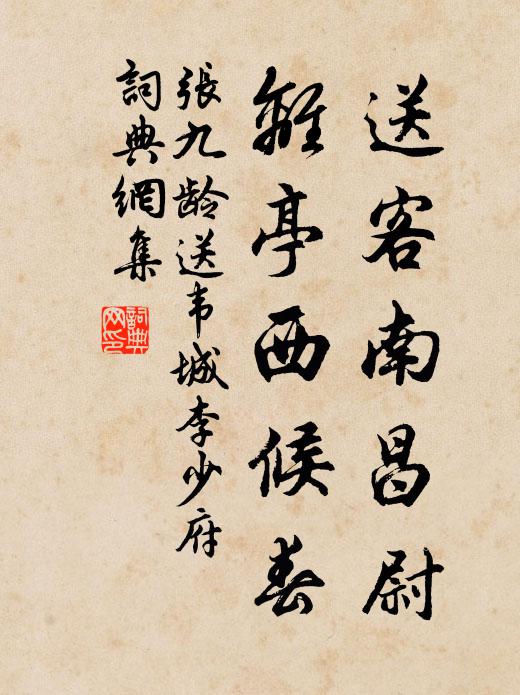 送客南昌尉
離亭西候春
張九龄送韦城李少府
詞典網集
詞典网印